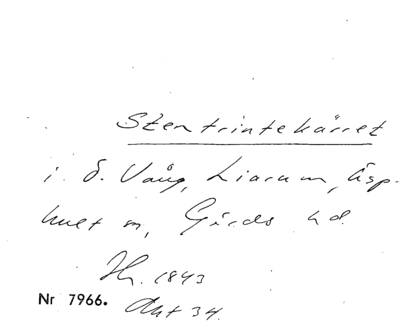 Stentrintekärret
i Ö. Vång, Liarum, Äsp-
huet m, Gärds hd.
Hn. 1843
Nr 7966. Akt 34.